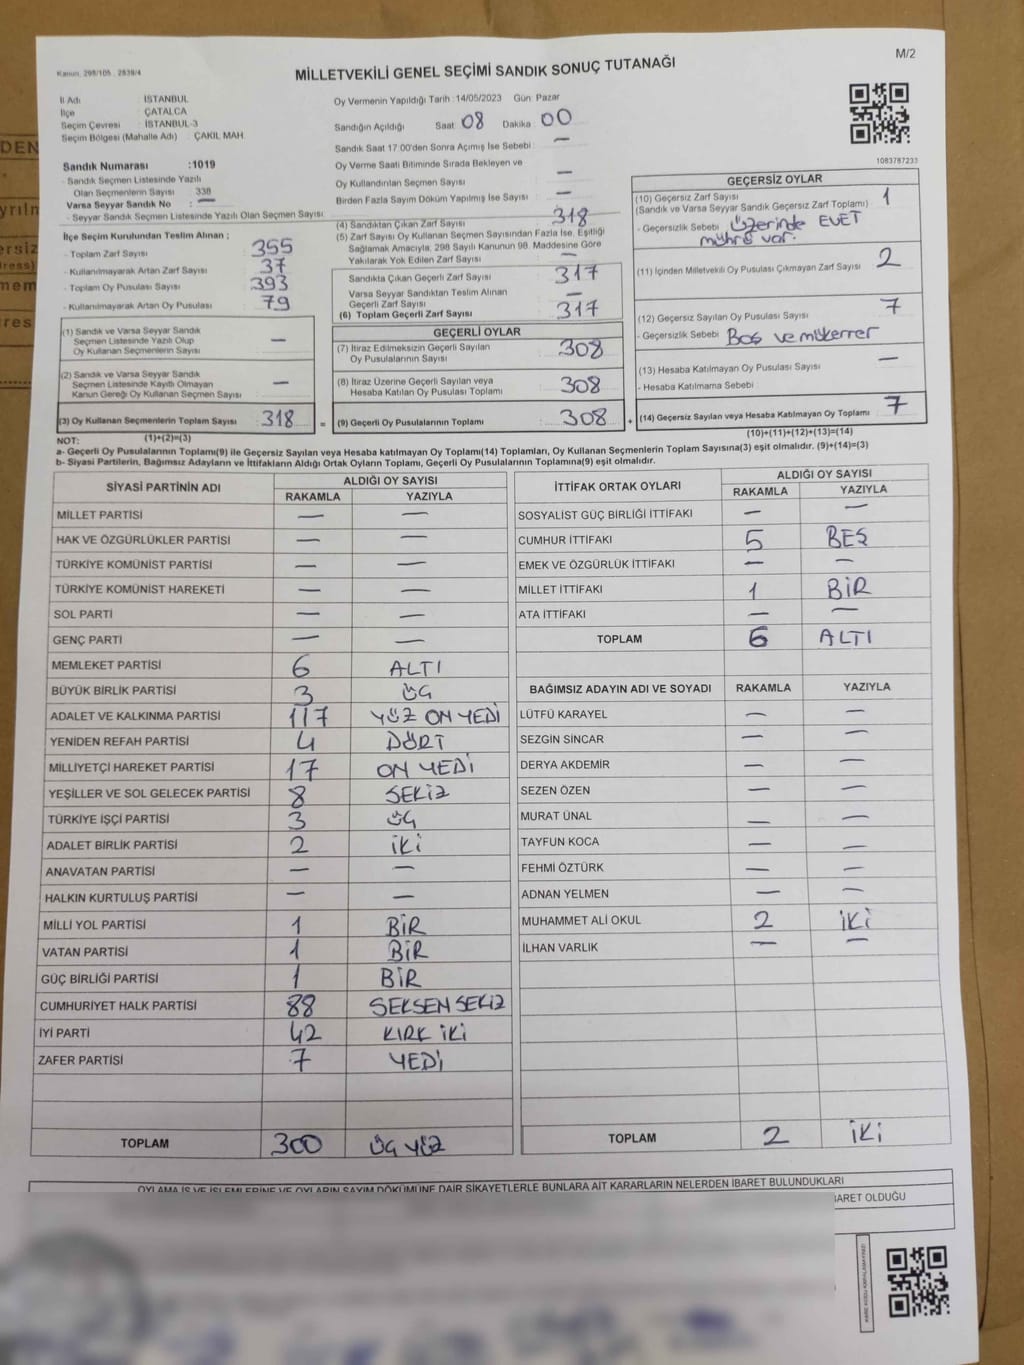 M/2
Kanun, 298/105 , 2839/4
MİLLETVEKİLİ GENEL SEÇİMİ SANDIK SONUÇ TUTANAĞI
İl Adı : İSTANBUL
İlçe : ÇATALCA
Seçim Çevresi : İSTANBUL-3
Seçim Bölgesi (Mahalle Adı) : ÇAKIL MAH.
Sandık Numarası :1019
- Sandık Seçmen Listesinde Yazılı
Olan Seçmenlerin Sayısı : 338
Varsa Seyyar Sandık No : —
- Seyyar Sandık Seçmen Listesinde Yazılı Olan Seçmen Sayısı
İlçe Seçim Kurulundan Teslim Alınan ;
- Toplam Zarf Sayısı : 355
- Kullanılmayarak Artan Zarf Sayısı : 37
- Toplam Oy Pusulası Sayısı : 393
- Kullanılmayarak Artan Oy Pusulası : 79
(1) Sandık ve Varsa Seyyar Sandık
Seçmen Listesinde Yazılı Olup
Oy Kullanan Seçmenlerin Sayısı —
(2) Sandık ve Varsa Seyyar Sandık
Seçmen Listesinde Kayıtlı Olmayan
Kanun Gereği Oy Kullanan Seçmen Sayısı —
(3) Oy Kullanan Seçmenlerin Toplam Sayısı 318
Oy Vermenin Yapıldığı Tarih :14/05/2023 Gün: Pazar
Sandığın Açıldığı Saat : 08 Dakika : 00
Sandık Saat 17:00'den Sonra Açılmış İse Sebebi : —
Oy Verme Saati Bitiminde Sırada Bekleyen ve
Oy Kullandırılan Seçmen Sayısı : —
Birden Fazla Sayım Döküm Yapılmış İse Sayısı : —
(4) Sandıktan Çıkan Zarf Sayısı 318
(5) Zarf Sayısı Oy Kullanan Seçmen Sayısından Fazla İse, Eşitliği
Sağlamak Amacıyla, 298 Sayılı Kanunun 98. Maddesine Göre
Yakılarak Yok Edilen Zarf Sayısı : —
Sandıkta Çıkan Geçerli Zarf Sayısı 317
Varsa Seyyar Sandıktan Teslim Alınan
Geçerli Zarf Sayısı —
(6) Toplam Geçerli Zarf Sayısı : 317
GEÇERLİ OYLAR
(7) İtiraz Edilmeksizin Geçerli Sayılan
Oy Pusulalarının Sayısı 308
(8) İtiraz Üzerine Geçerli Sayılan veya
Hesaba Katılan Oy Pusulası Toplamı 308
= (9) Geçerli Oy Pusulalarının Toplamı 308 +
1083787233
GEÇERSİZ OYLAR
(10) Geçersiz Zarf Sayısı 1
(Sandık ve Varsa Seyyar Sandık Geçersiz Zarf Toplamı)
- Geçersizlik Sebebi : üzerinde EVET
mührü var.
(11) İçinden Milletvekili Oy Pusulası Çıkmayan Zarf Sayısı 2
(12) Geçersiz Sayılan Oy Pusulası Sayısı 7
- Geçersizlik Sebebi : Boş ve mükerrer
(13) Hesaba Katılmayan Oy Pusulası Sayısı —
- Hesaba Katılmama Sebebi
(14) Geçersiz Sayılan veya Hesaba Katılmayan Oy Toplamı 7
NOT: (1)+(2)=(3)
(10)+(11)+(12)+(13)=(14)
a- Geçerli Oy Pusulalarının Toplamı(9) ile Geçersiz Sayılan veya Hesaba katılmayan Oy Toplamı(14) Toplamları, Oy Kullanan Seçmenlerin Toplam Sayısına(3) eşit olmalıdır. (9)+(14)=(3)
b- Siyasi Partilerin, Bağımsız Adayların ve İttifakların Aldığı Ortak Oyların Toplamı, Geçerli Oy Pusulalarının Toplamına(9) eşit olmalıdır.
SİYASİ PARTİNİN ADI ALDIĞI OY SAYISI
RAKAMLA YAZIYLA
MİLLET PARTİSİ — —
HAK VE ÖZGÜRLÜKLER PARTİSİ — —
TÜRKİYE KOMÜNİST PARTİSİ — —
TÜRKİYE KOMÜNİST HAREKETİ — —
SOL PARTİ — —
GENÇ PARTİ — —
MEMLEKET PARTİSİ 6 ALTI
BÜYÜK BİRLİK PARTİSİ 3 ÜÇ
ADALET VE KALKINMA PARTİSİ 117 YÜZ ON YEDİ
YENİDEN REFAH PARTİSİ 4 DÖRT
MİLLİYETÇİ HAREKET PARTİSİ 17 ON YEDİ
YEŞİLLER VE SOL GELECEK PARTİSİ 8 SEKİZ
TÜRKİYE İŞÇİ PARTİSİ 3 ÜÇ
ADALET BİRLİK PARTİSİ 2 İKİ
ANAVATAN PARTİSİ — —
HALKIN KURTULUŞ PARTİSİ — —
MİLLİ YOL PARTİSİ 1 BİR
VATAN PARTİSİ 1 BİR
GÜÇ BİRLİĞİ PARTİSİ 1 BİR
CUMHURİYET HALK PARTİSİ 88 SEKSEN SEKİZ
İYİ PARTİ 42 KIRK İKİ
ZAFER PARTİSİ 7 YEDİ
TOPLAM 300 ÜÇ YÜZ
İTTİFAK ORTAK OYLARI ALDIĞI OY SAYISI
RAKAMLA YAZIYLA
SOSYALİST GÜÇ BİRLİĞİ İTTİFAKI — —
CUMHUR İTTİFAKI 5 BEŞ
EMEK VE ÖZGÜRLÜK İTTİFAKI — —
MİLLET İTTİFAKI 1 BİR
ATA İTTİFAKI — —
TOPLAM 6 ALTI
BAĞIMSIZ ADAYIN ADI VE SOYADI RAKAMLA YAZIYLA
LÜTFÜ KARAYEL — —
SEZGİN SİNCAR — —
DERYA AKDEMİR — —
SEZEN ÖZEN — —
MURAT ÜNAL — —
TAYFUN KOCA — —
FEHMİ ÖZTÜRK — —
ADNAN YELMEN — —
MUHAMMET ALİ OKUL 2 İKİ
İLHAN VARLIK — —
TOPLAM 2 İKİ
OYLAMA İŞ VE İŞLEMLERİNE VE OYLARIN SAYIM DÖKÜMÜNE DAİR ŞİKAYETLERLE BUNLARA AİT KARARLARIN NELERDEN İBARET BULUNDUKLARI
BARET OLDUĞU